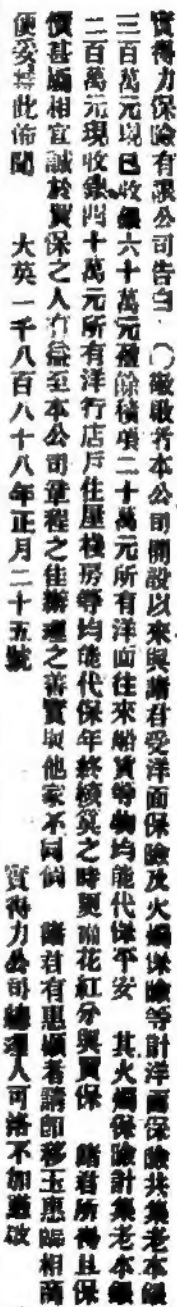 實得力保險有限公司告白 ○敬啟者本公司開設以來與諸君受洋面保險及火燭保險等計洋面保險共集老本銀
三百萬元現已收銀六十萬元積餘積項二十萬元所有洋面往來船貨等物均能代保平安 其火燭保險計集老本銀
二百萬元現收銀四十萬元所有洋行店戶住屋棧房等均能代保年終核算之時更兩花紅分與買保 諸君所得且保
價甚屬相宜誠於買保之人有益至本公司章程之佳辦理之善實與他家不同倘 諸君有惠顧者請即移玉惠臨相商
便妥特此佈聞 大英一千八百八十八年正月二十五號 實得力公司總理人可洛不加遜啟